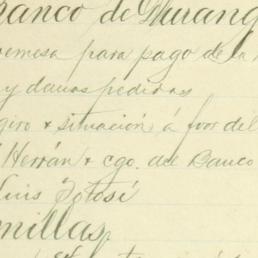 Banco de Durang
remesa para pago de la
y demas pedidas
giro & situación á fvor del
Herrán & cgo. del Banco
Luis Potosí
millas